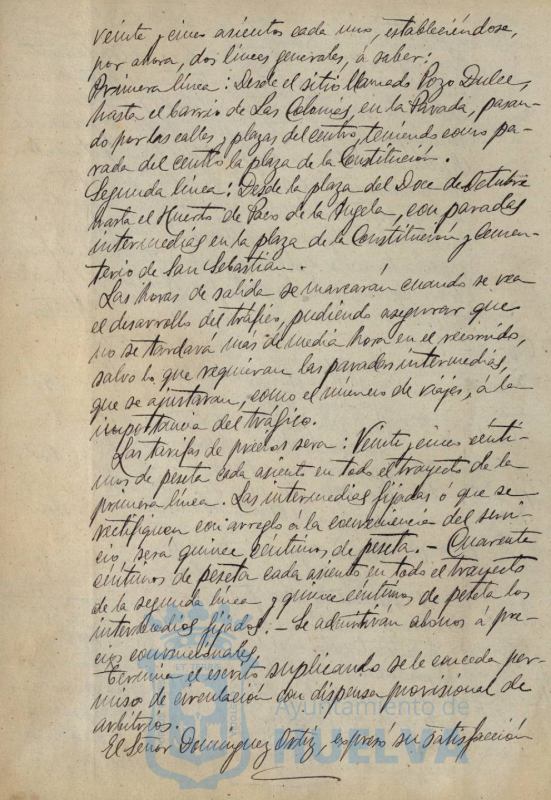 veinte y cinco asientos cada uno, estableciéndose,
por ahora, dos líneas generales, á saber:
Primera línea: Desde el sitio llamado Pozo Dulce,
hasta el barrio de Las Colonias, en la Pavada, pasan-
do por las calles y plazas del centro, teniendo como pa-
rada del centro la plaza de la Constitución.
Segunda línea: Desde la plaza del Doce de Octubre
hasta el Huerto de Paco de la Angela, con paradas
intermedias en la plaza de la Constitución y Cemen-
terio de San Sebastián.
Las horas de salida se marcarán cuando se vea
el desarrollo del tráfico, pudiendo asegurar que
no se tardará más de media hora en el recorrido,
salvo lo que requieran las paradas intermedias,
que se ajustaran, como el número de viajes, á la
importancia del tráfico.
Las tarifas de precios sera: Veinte y cinco cénti-
mos de peseta cada asiento en todo el trayecto de la
primera línea. Las intermedias fijadas ó que se
rectifiquen con arreglo á la conveniencia del servi-
cio, sera quince céntimos de peseta. - Cuarenta
céntimos de peseta cada asiento en todo el trayecto
de la segunda linea y quince céntimos de peseta los
intermedios fijados. - Se admitirán abonos á pre-
cios convencionales.
Termina el escrito suplicando se le conceda per-
miso de circulación con dispensa provisional de
arbitrios.
El Señor Dominguez Ortiz, expresó su satisfacción
Ayuntamiento de
HUELVA